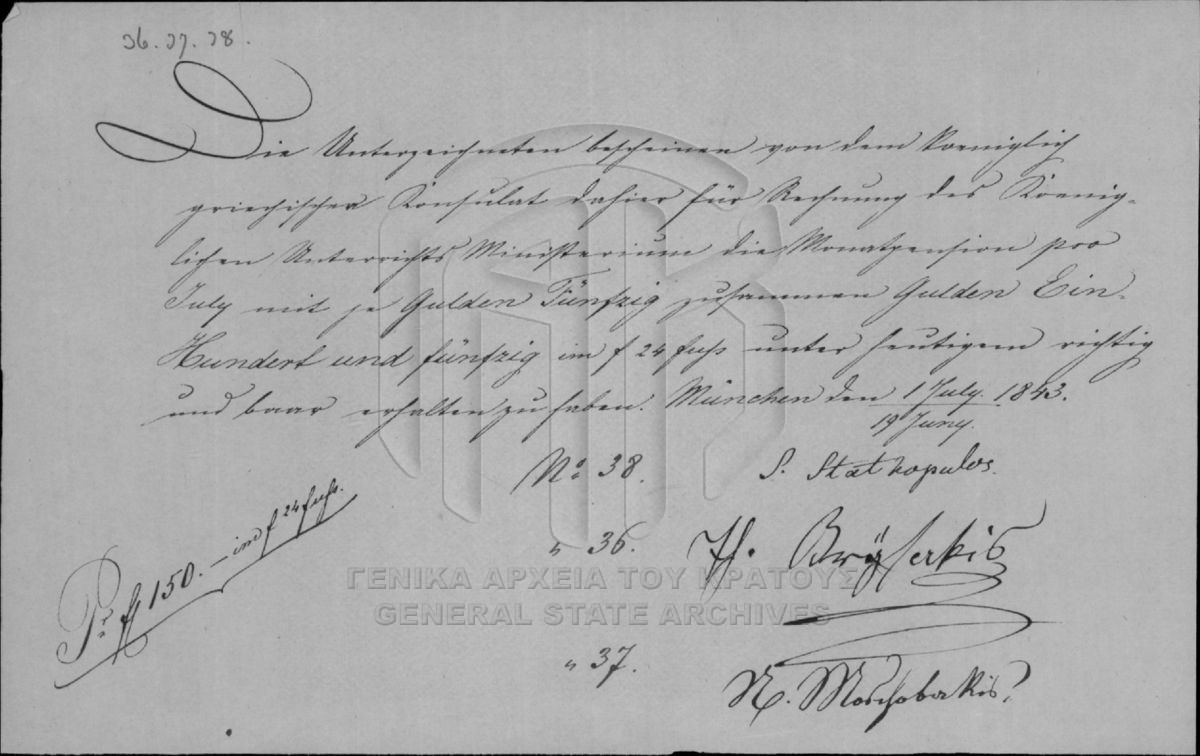 36. 37. 38.
Die Unterzeichneten bescheinen von dem koeniglich
griechischen Konsulat dahier für Rechnung des Koenig-
lichen Unterrichts Ministerium die Monatpension pro
July mit je Gulden Fünfzig zusammen Gulden Ein-
Hundert und fünfzig im f 24 fuss unter heutigem richtig
und baar erhalten zu haben. München den 1 July. 1843.
19 Juny.
No 38. S. Stathopulos.
" 36. Th. Brysakis
Pr f 150. – im f 24 fuss.
ΓΕΝΙΚΑ ΑΡΧΕΙΑ ΤΟΥ ΚΡΑΤΟΥΣ
GENERAL STATE ARCHIVES
" 37.
N. Moschobakis